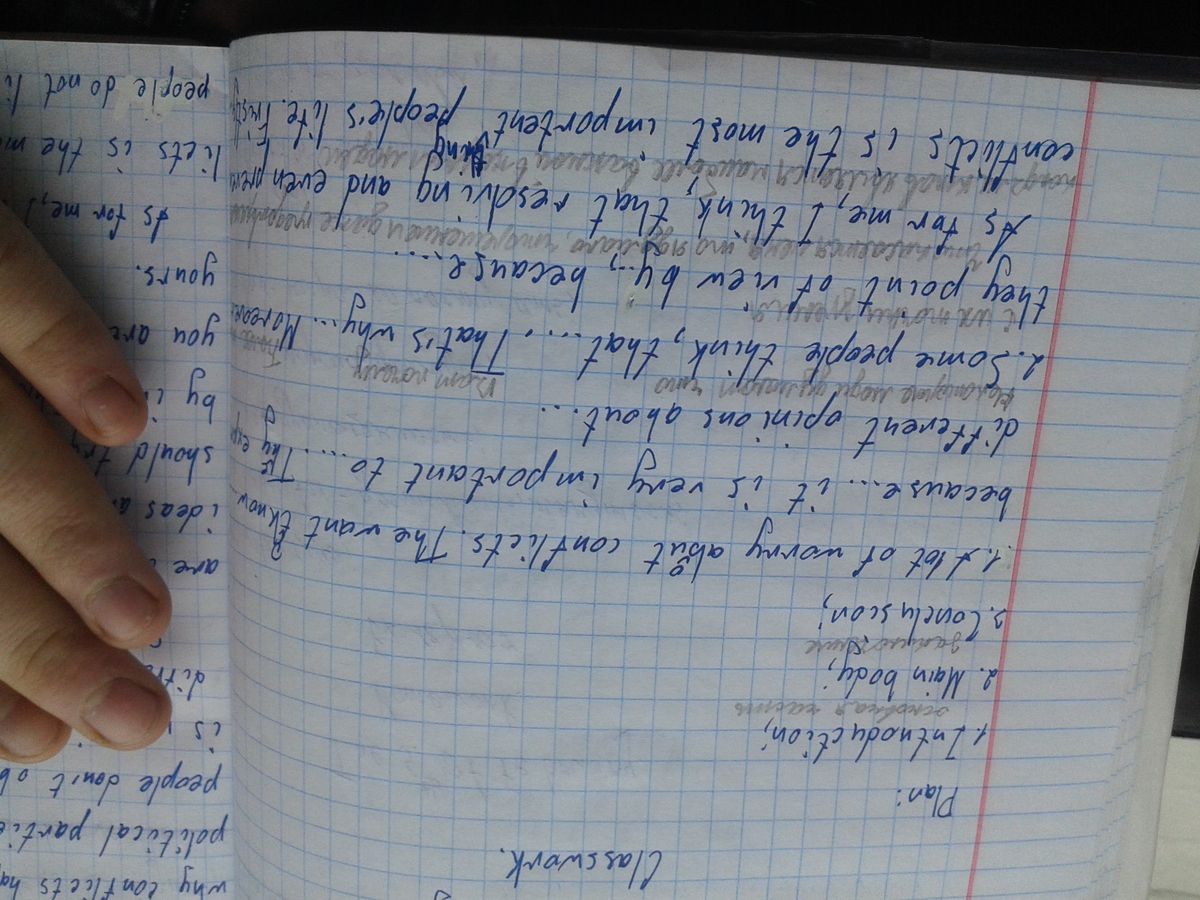 Classwork.
Plan:
1. Introduction;
основная часть
2. Main body;
заключение
3. Conclyscion;
1. A lot of worry about conflicts. The want to know...
because... it is very important to .... They exp
different opinions about...
Некоторые люди думают что Вот почему
2. Some people think, that .... That's why... Moreove
С их точки зрения
they point of view by..., because....
Что касается меня, я думаю, что решение и даже
As for me, I think, that resolving and even preve
является наиболее важной в людей
conflicts is the most importent thing people's life. Firstly
why conflicts ha
political partie
people don't ob
is
diffe
are
ideas a
should try
by i
you are
yours.
As for me, I
licts is the mo
people do not li